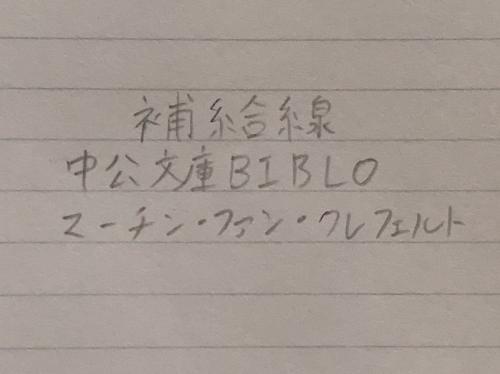 補給線
中公文庫BIBLO
マーチン・ファン・クレフェルト